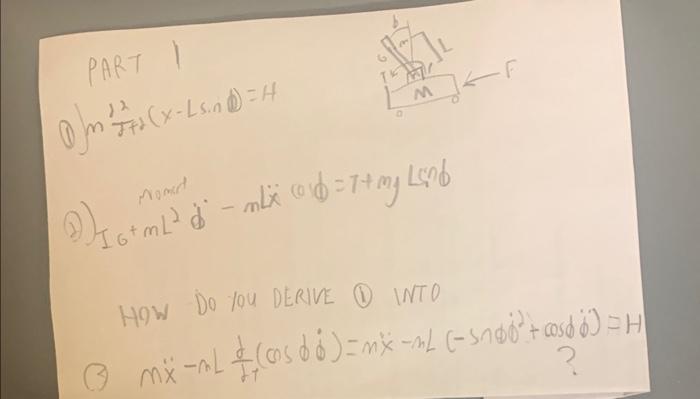 PART 1
① m d²/dt² (x - L sin ϕ) = H
Moment
②) I G + mL² ϕ̈ - mLẍ cos ϕ = T + mg L sin ϕ
ϕ
m
G
L
T
M
F
HOW DO YOU DERIVE ① INTO
③ mẍ - mL d/dt (cos ϕ ϕ̇) = mẍ - mL (-sin ϕ ϕ̇² + cos ϕ ϕ̈) = H
?